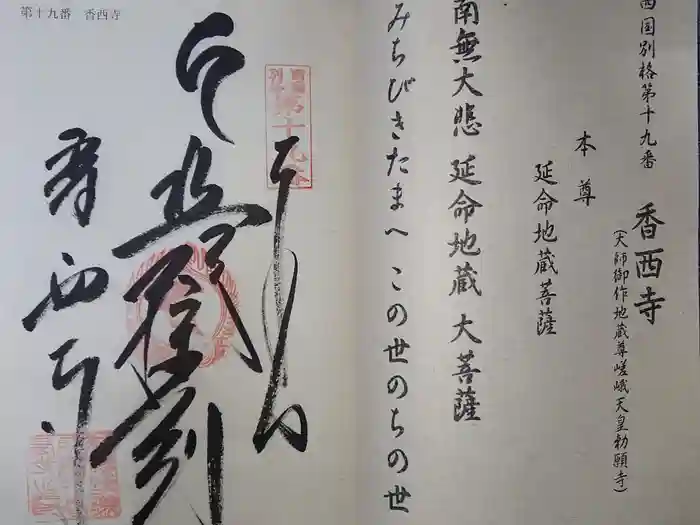 西国別格第十九番
香西寺
(大師御作地蔵尊嵯峨天皇勅願寺)
本尊
延命地蔵菩薩
南無大悲 延命地蔵 大菩薩
みちびきたまへ この世のちの世
第十九番 香西寺
第十九番
香西寺